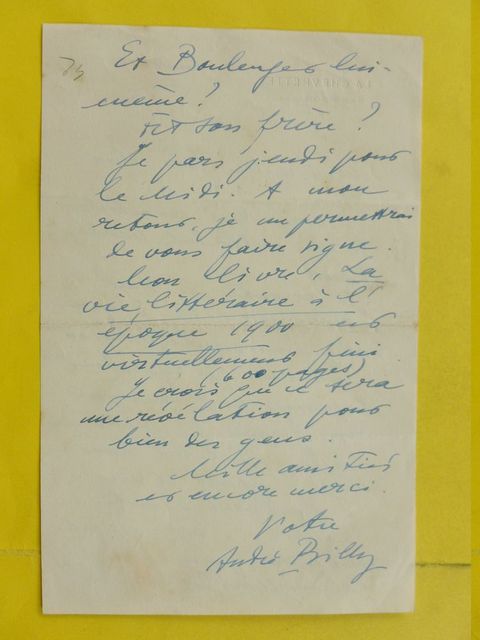 Et Boulenger lui-
même ?
Et son frère ?
Je pars jeudi pour
le Midi. A mon
retour, je me permettrai
de vous faire signe.
Mon livre, La
vie littéraire à l'
époque 1900 est
virtuellement fini
(600 pages)
Je crois que ce sera
une révélation pour
bien des gens.
Mille amitiés
et encore merci.
Votre
André Billy